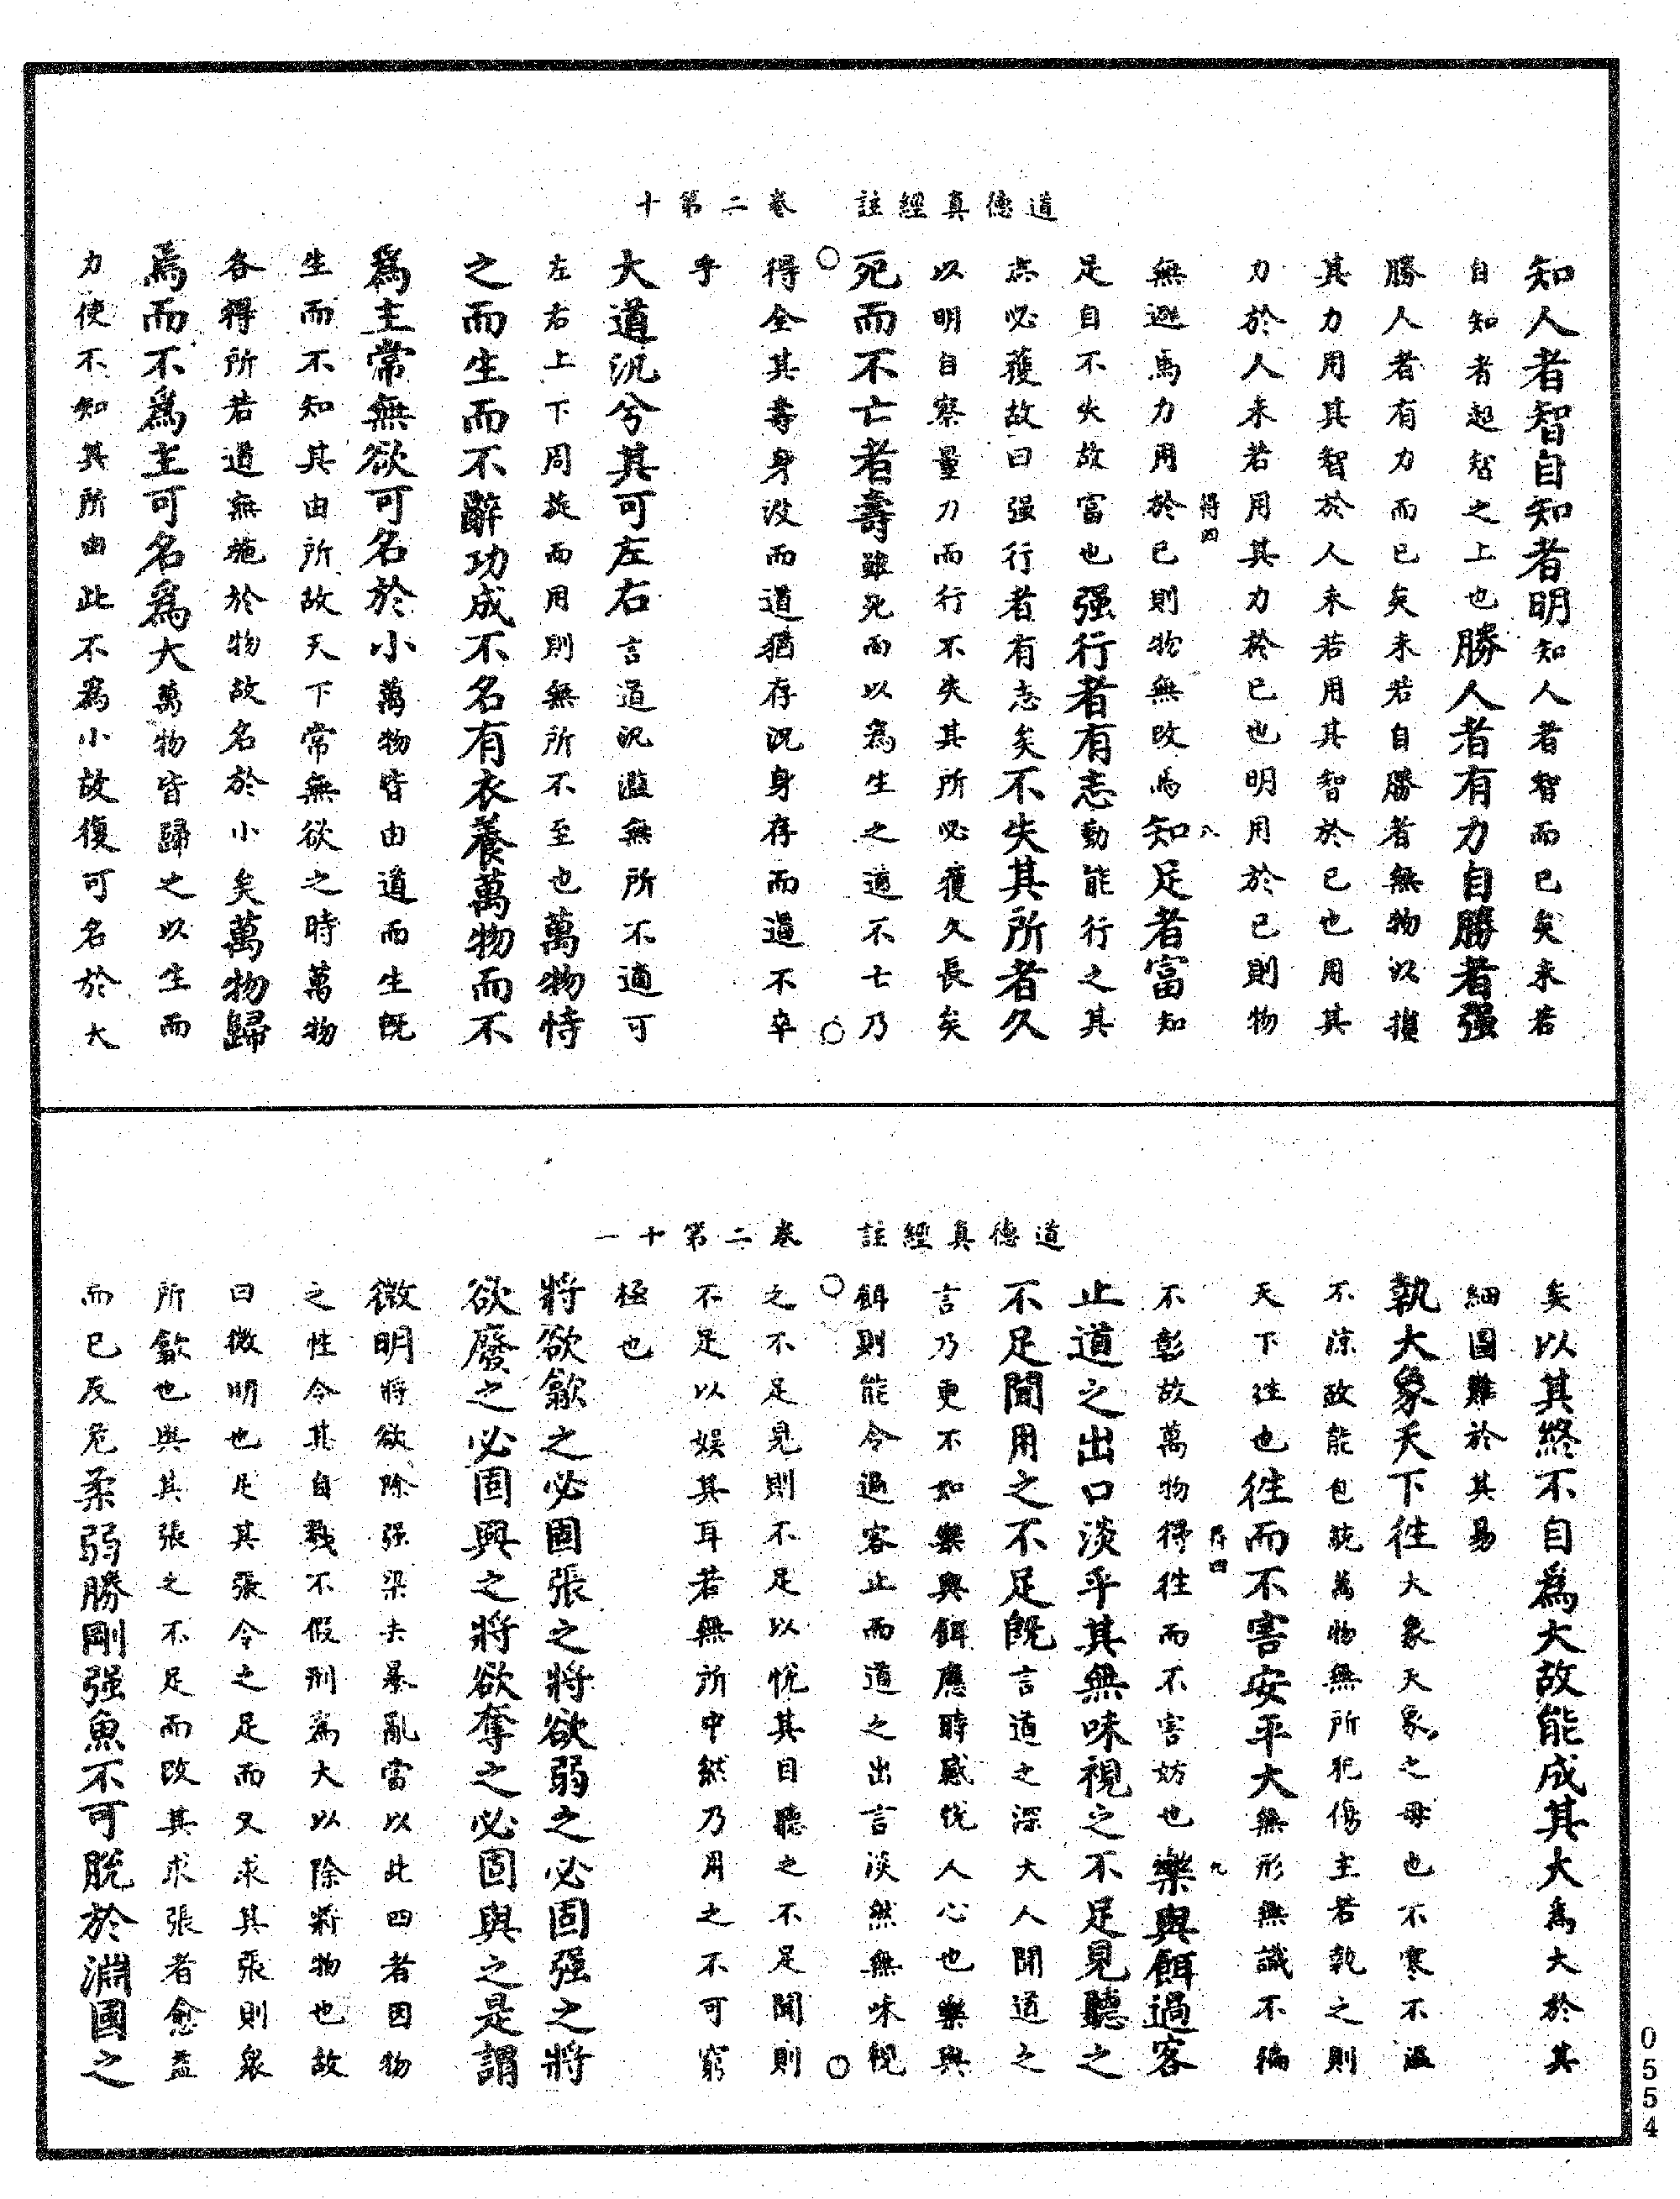 道德真經註　卷二第十
知人者智自知者明知人者智而已矣未若
自知者超智之上也勝人者有力自勝者强
勝人者有力而已矣未若自勝者無物以損
其力用其智於人未若用其智於已也用其
力於人未若用其力於已也明用於已則物
無避焉力用於已則物無改焉知足者富知
得四
八
足自不失故富也强行者有志動能行之其
志必獲故曰强行者有志矣不失其所者久
以明自察量力而行不失其所必獲久長矣
死而不亡者壽雖死而以爲生之道不亡乃
得全其壽身沒而道猶存況身存而道不卒
乎
大道汎兮其可左右言道汎濫無所不適可
左右上下周旋而用則無所不至也萬物恃
之而生而不辭功成不名有衣養萬物而不
爲主常無欲可名於小萬物皆由道而生既
生而不知其由所故天下常無欲之時萬物
各得所若道無施於物故名於小矣萬物歸
焉而不爲主可名爲大萬物皆歸之以生而
力使不知其所由此不爲小故復可名於大
道德真經註　卷二第十一
矣以其終不自爲大故能成其大爲大於其
細圖難於其易
執大象天下往大象天象之母也不寒不溫
不涼故能包統萬物無所犯傷主若執之則
天下往也往而不害安平大無形無識不偏
不彰故萬物得往而不害妨也樂與餌過客
得四
九
止道之出口淡乎其無味視之不足見聽之
不足聞用之不足既言道之深大人聞道之
言乃更不如樂與餌應時感悅人心也樂與
餌則能令過客止而道之出言淡然無味視
之不足見則不足以悅其目聽之不足聞則
不足以娛其耳若無所中然乃用之不可窮
極也
將欲歙之必固張之將欲弱之必固强之將
欲廢之必固興之將欲奪之必固與之是謂
微明將欲除强梁去暴亂當以此四者因物
之性令其自戮不假刑爲大以除將物也故
曰微明也足其張令之足而又求其張則衆
所歙也與其張之不足而改其求張者愈益
而已反危柔弱勝剛强魚不可脫於淵國之
0554